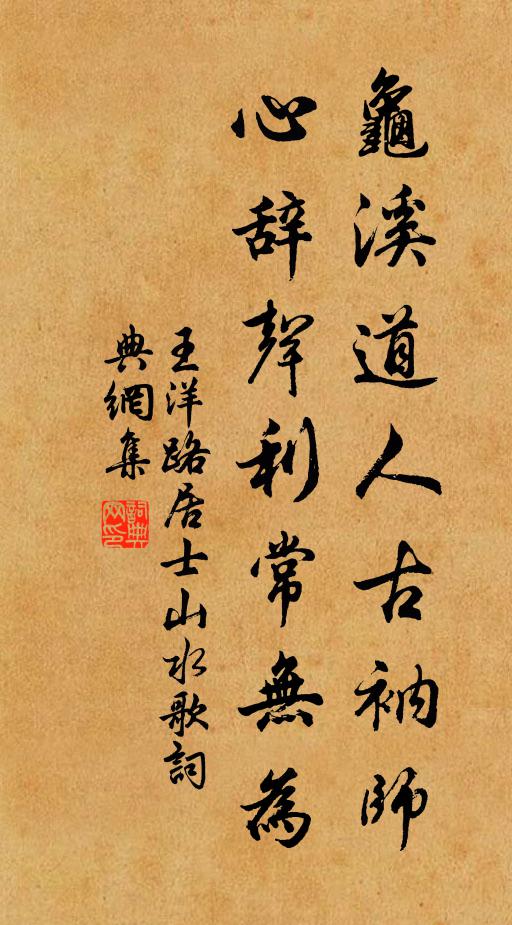 龜溪道人古衲師
心辞聲利常無為
王洋路居士山水歌詞
典網集
詞典
网印